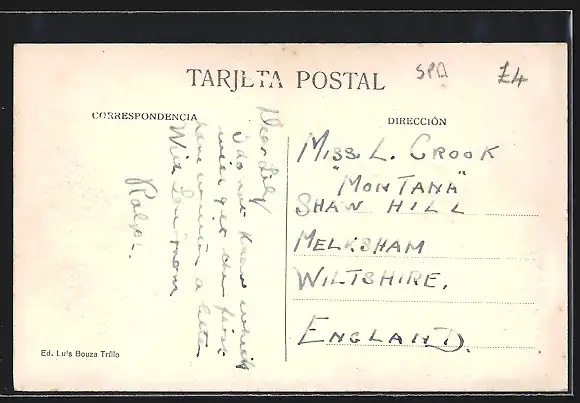 TARJETA POSTAL
SPA
£4
CORRESPONDENCIA
DIRECCIÓN
Dear Lily
I do not know which
will get the first
have written a letter
With Love from
Ralph.
MISS L. CROOK
"MONTANA"
SHAW HILL
MELKSHAM
WILTSHIRE.
ENGLAND.
Ed. Luis Bouza Trillo